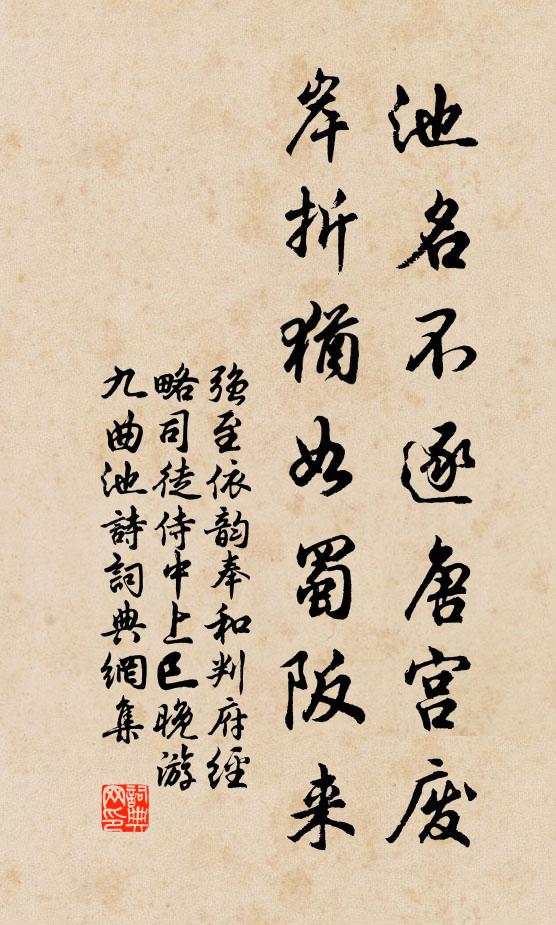 池名不逐唐宫废
岸折犹如蜀阪来
強至依韵奉和判府經
略司徒侍中上巳晚游
九曲池詩詞典網集
詞典
网印